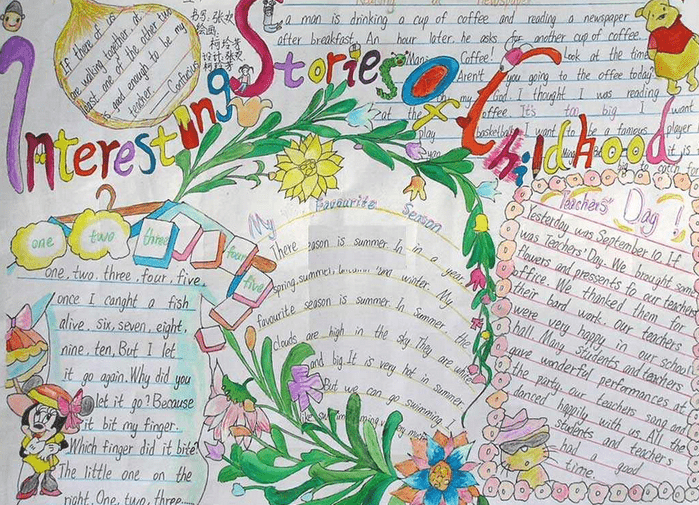 Interesting Stories Of Childhood
If there are
are walking together, at
least one of the other two
is good enough to be my
teacher. — Confucius
柯玲芳
Reading a newspaper
a man is drinking a cup of coffee and reading a newspaper
after breakfast. An hour later, he asks for another cup of coffee.
Coffee! Look at the time
Aren't you going to the office today
God. I thought I was reading
at the office It's too big I want
play basketball I want to be a famous player
one
two
three
four
five
one, two, three, four, five,
once I canght a fish
alive, six, seven, eight,
nine, ten, But I let
it go again. Why did you
let it go? Because
it bit my finger.
Which finger did it bite
The little one on the
right. One, two, three......
My Favourite Season
There season is summer. In in a year,
spring, summer, and winter. My
favourite season is summer. In summer the
clouds are high in the sky. They are white
and big. It is very hot in summer.
But we can go swimming. I
like very much
Teachers' Day!
Yesterday was September 10. If
was Teachers' Day. We brought some
flowers and pressents fo our teachers
office. We thanked them for
their bard work. Our teachers
were very happy in our school
hall. Many students and teachers
gave wonderful performances at
the party. our teachers song and
danced happily with us. All the
students and teachers
had a good
time.